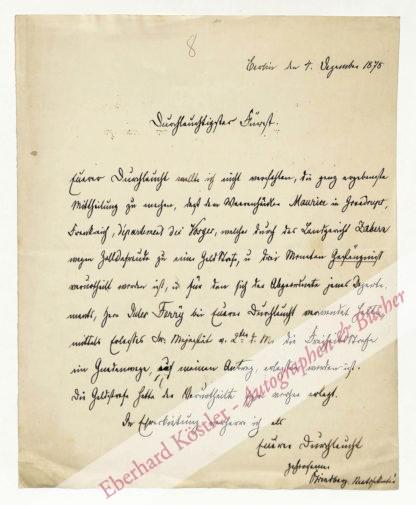 8
Berlin den 4. Dezember 1878
Durchlauchtigster Fürst.
Euerer Durchlaucht wollte ich nicht verfehlen, die ganz ergebenste
Mittheilung zu machen, daß dem Maurice in
Frankreich, Département des Vosges, welcher durch das Landgericht Zabern
wegen Zolldefraude zu einer Geldstrafe u. drei Monaten Gefängniß
verurtheilt worden ist, u. für den sich der Abgeordnete jenes Departe-
ments, Herr Jules Ferry bei Euerer Durchlaucht verwendet hatte
mittels Erlasses Sr. Majestät v. 2ten d. M. die Freiheitsstrafe
im Gnadenwege, auf meinen Antrag, erlassen worden ist.
Die Geldstrafe hatte der Verurtheilte schon vorher erlegt.
In Ehrerbietung verharre ich als
Euerer Durchlaucht
gehorsamer
Friedberg
Eberhard Köstler - Autographen der Bücher